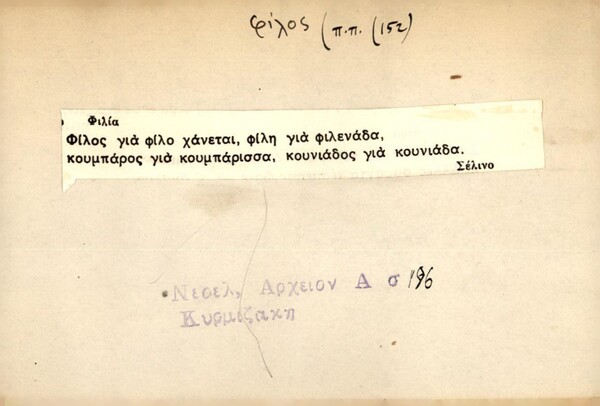 φίλος (π.π. (152)
Φιλία
Φίλος γιὰ φίλο χάνεται, φίλη γιὰ φιλενάδα,
κουμπάρος γιὰ κουμπάρισσα, κουνιάδος γιὰ κουνιάδα.
Σέλινο
Νεοελ. Αρχειον Α σ 196
Κυρμιζακη